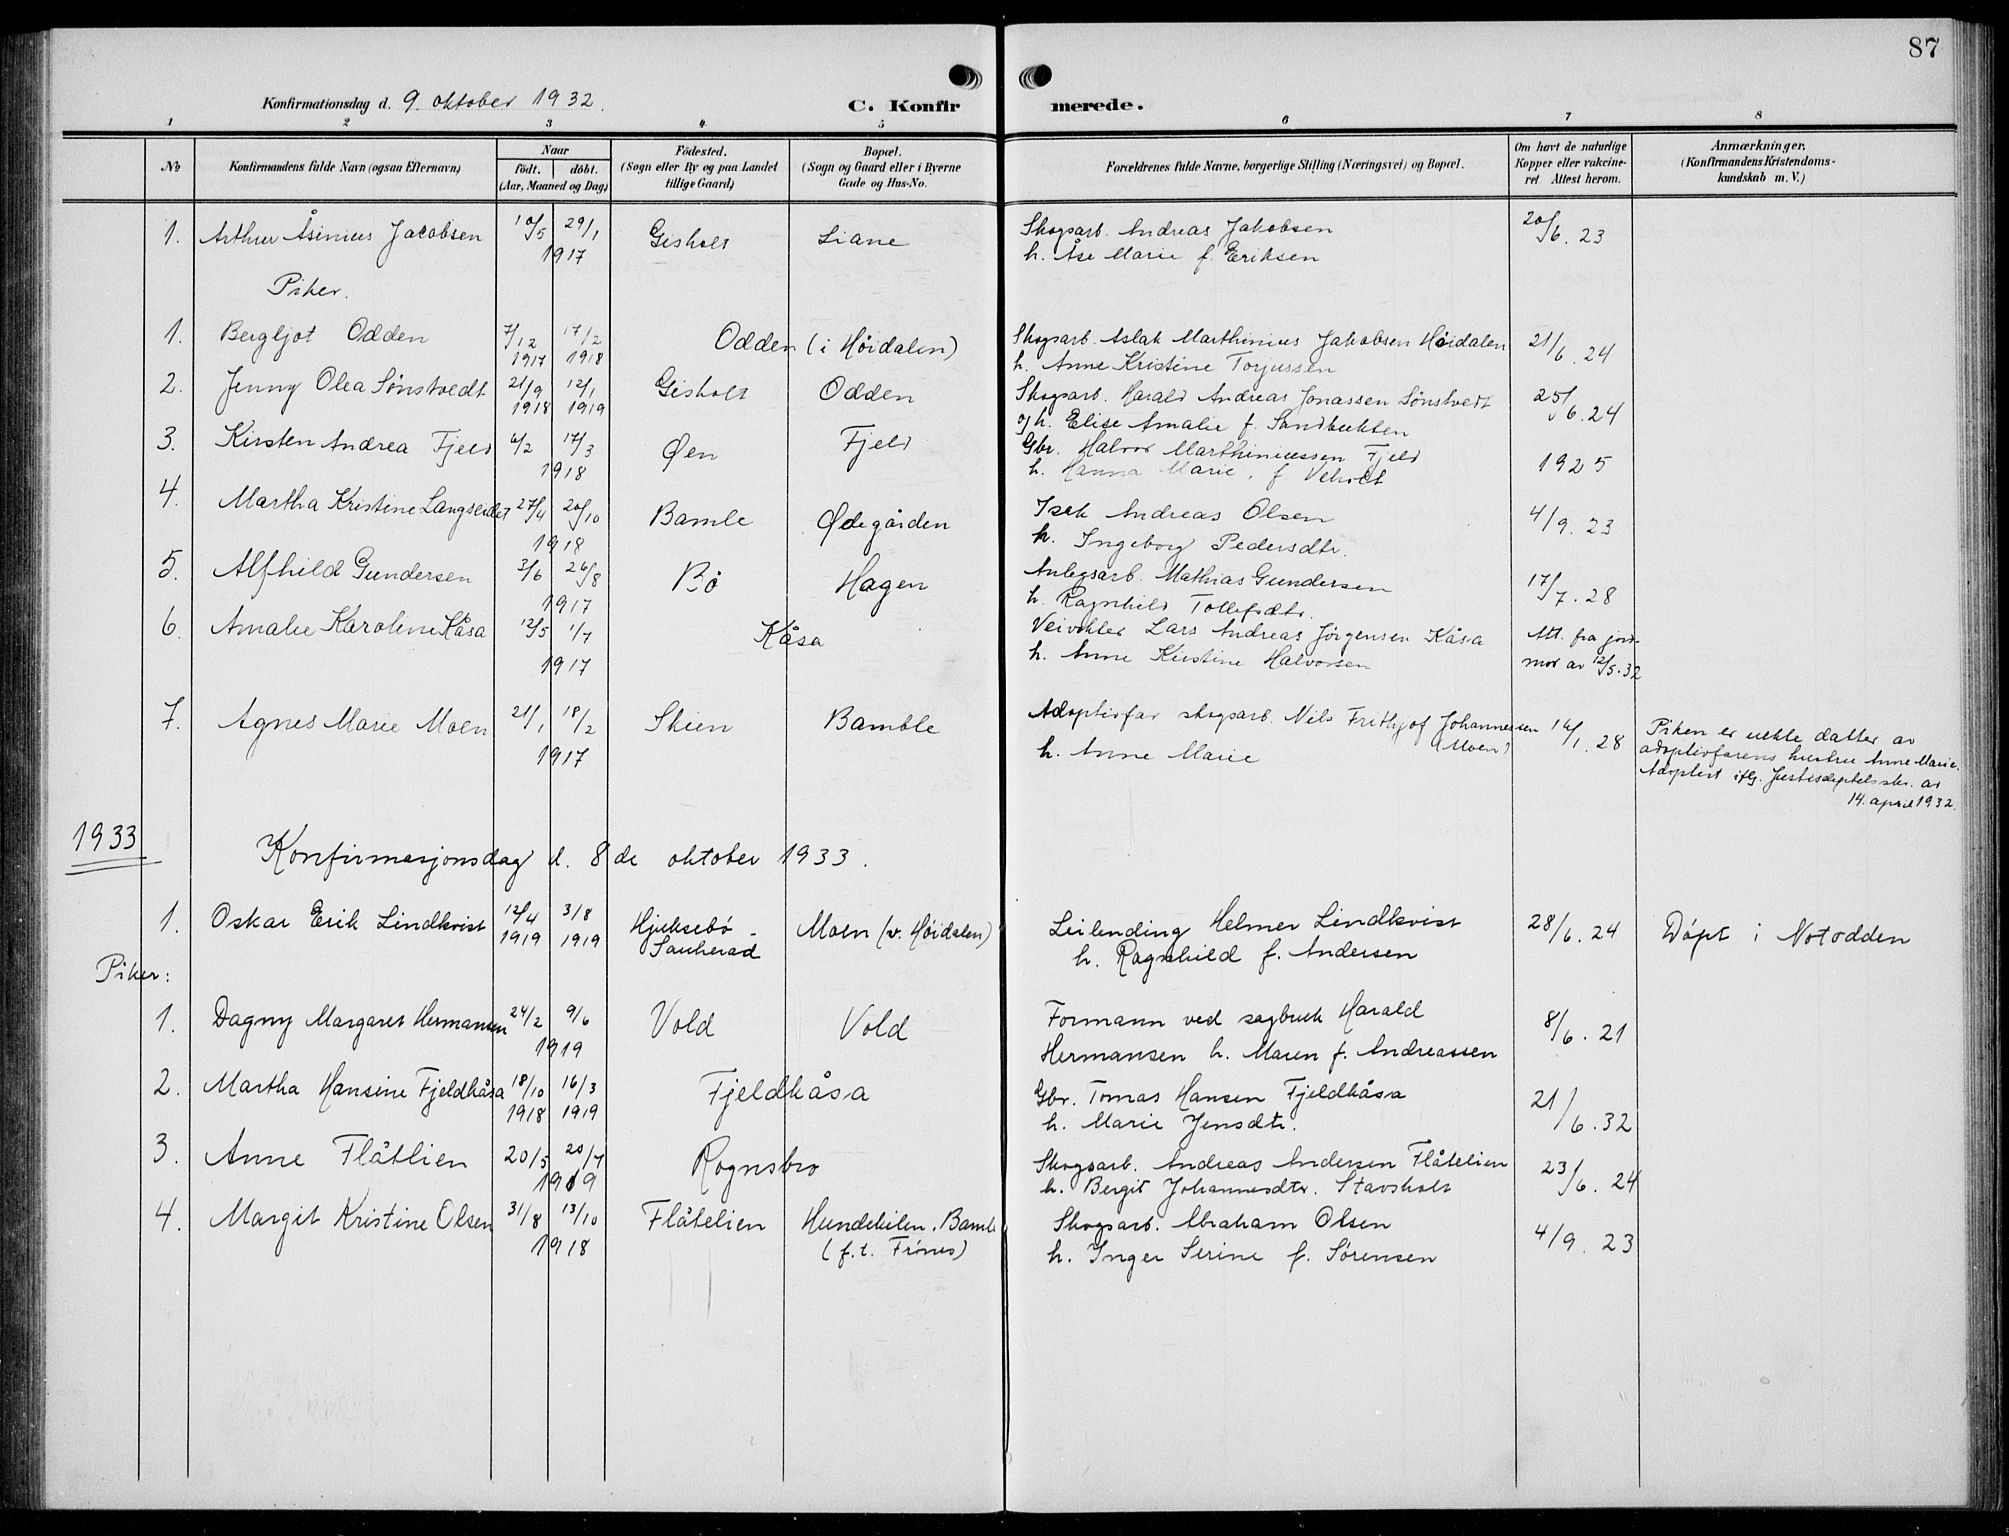 87
Konfirmationsdag d. 9. oktober 1932.
C. Konfirmerede.
1 2 3 4 5 6 7 8
No
Konfirmandens fulde Navn (ogsaa Efternavn)
Naar
født. døbt.
(Aar, Maaned og Dag)
Fødested.
(Sogn eller By og paa Landet
tillige Gaard)
Bopæl.
(Sogn og Gaard eller i Byerne
Gade og Hus-No.
Forældrenes fulde Navne, borgerlige Stilling (Næringsvei) og Bopæl.
Om havt de naturlige
Kopper eller vaccine-
ret Attest herom.
Anmærkninger.
(Konfirmandens Kristendoms-
kundskab m. V.)
1. Arthur Åsinius Jacobsen 10/5 29/1 Gisholt Liane Skogsarb. Andreas Jakobsen 20/6. 23
1917 h. Åse Marie f. Eriksen
Piker.
1. Bergljot Odden 7/12 17/2 Odden (i Høidalen) Skogsarb. Aslak Marthinius Jakobsen Høidalen 21/6. 24
1917 1918 h. Anne Kristine Torjussen
2. Jenny Olea Sønstvedt 21/9 12/1 Gisholt Odden Skogsarb. Harald Andreas Jonassen Sønstvedt 25/6. 24
1918 1919 og h. Elise Amalie f. Sandbukten
3. Kirsten Andrea Fjeld 6/2 17/3 Øen Fjeld Gbr. Halvor Marthiniussen Fjeld 1925
1918 h. Hanna Marie, f Veholt
4. Martha Kristine Langseidet 27/4 20/10 Bamle Ødegården Isak Andreas Olsen 4/9. 23
1918 h. Ingeborg Pedersdtr.
5. Alfhild Gundersen 3/6 26/8 Bø Hagen Anlegsarb. Mathias Gundersen 17/7. 28
1917 h. Ragnhild Tollefsdtr.
6. Amalie Karoline Kåsa 12/5 1/7 Kåsa Veivokter Lars Andreas Jörgensen Kåsa Att. fra jord-
1917 h. Anne Kirstine Halvorsen mor av 12/5. 32
7. Agnes Marie Moen 21/1 18/2 Skien Bamble Adoptivfar skogsarb. Nils Frithjof Johannessen 16/1. 28
(Moen)
1917 h. Anne Marie
Piken er uekte datter av
adoptivfarens hustru Anne Marie.
Adoptert iflg. Justisdeptets skr. av
14. april 1932.
1933
Konfirmasjonsdag d. 8de oktober 1933.
1. Oskar Erik Lindkvist 12/4 3/8 Hjuksebø - Moen (v. Høidalen) Leilending Helmer Lindkvist 28/6. 24 Döpt i Notodden
1919 1919 Sauherad h. Ragnhild f. Andersen
Piker:
1. Dagny Margaret Hermansen 24/2 9/6 Vold Vold Formann ved sagbruk Harald 8/6. 21
1919 Hermansen h. Maren f. Andreassen
2. Martha Hansine Fjeldkåsa 18/10 16/3 Fjeldkåsa Gbr. Tomas Hansen Fjeldkåsa 21/6. 32
1918 1919 h. Marie Jensdtr.
3. Anne Flåtlien 20/5 20/7 Rognsbro Skogsarb. Andreas Andersen Flåtelien 23/6. 24
1919 h. Bergit Johannesdtr. Stavsholt
4. Margit Kristine Olsen 31/8 13/10 Flåtelien Hundekilen. Bamle Skogsarb. Abraham Olsen 4/9. 23
1918 (f.t. Frönes) h. Inger Serine f. Sørensen